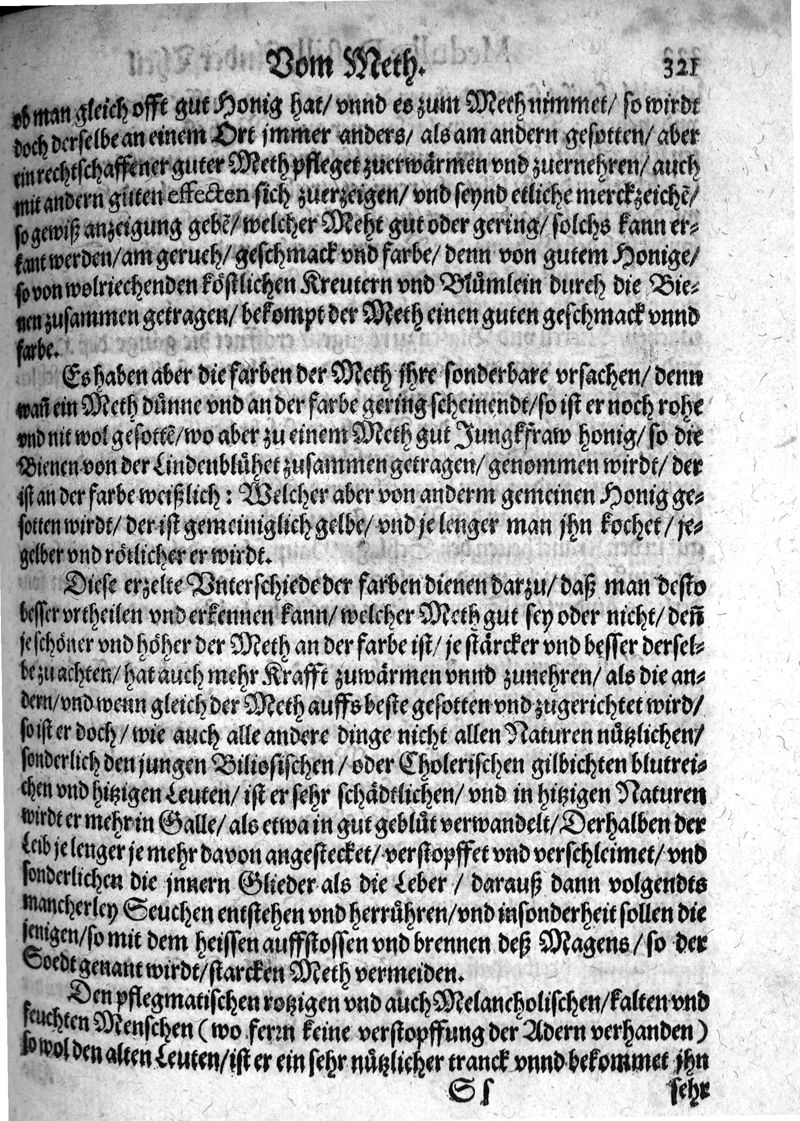 Vom Meth. 321
ob man gleich offt gut Honig hat/ vnnd es zum Meth nimmet/ so wirdt
doch derselbe an einem Ort jmmer anders/ als am andern gesotten/ aber
ein rechtschaffener guter Meth pfleget zuerwärmen vnd zuernehren/ auch
mit andern guten effecten sich zuerzeigen/ vnd seynd etliche merckzeichē/
so gewiß anzeigung gebē/ welcher Meht gut oder gering/ solchs kann er-
kant werden/ am geruch/ geschmack vnd farbe/ denn von gutem Honige/
so von wolriechenden köstlichen Kreutern vnd Blümlein durch die Bie-
nen zusammen getragen/ bekompt der Meth einen guten geschmack vnnd
farbe.
Es haben aber die farben der Meth jhre sonderbare vrsachen/ denn
wañ ein Meth dünne vnd an der farbe gering scheinendt/ so ist er noch rohe
vnd nit wol gesottē/ wo aber zu einem Meth gut Jungkfraw honig/ so die
Bienen von der Lindenblühet zusammen getragen/ genommen wirdt/ der
ist an der farbe weißlich: Welcher aber von anderm gemeinen Honig ge-
sotten wirdt/ der ist gemeiniglich gelbe/ vnd je lenger man jhn kochet/ je-
gelber vnd rötlicher er wirdt.
Diese erzelte Vnterschiede der farben dienen darzu/ daß man desto
besser vrtheilen vnd erkennen kann/ welcher Meth gut sey oder nicht/ deñ
je schöner vnd höher der Meth an der farbe ist/ je stärcker vnd besser dersel-
be zu achten/ hat auch mehr Krafft zuwärmen vnnd zunehren/ als die an-
dern/ vnd wenn gleich der Meth auffs beste gesotten vnd zugerichtet wird/
so ist er doch/ wie auch alle andere dinge nicht allen Naturen nützlichen/
sonderlich den jungen Biliosischen/ oder Cholerischen gilbichten blutrei-
chen vnd hitzigen Leuten/ ist er sehr schädtlichen/ vnd in hitzigen Naturen
wirdt er mehr in Galle/ als etwa in gut geblüt verwandelt/ Derhalben der
Leib je lenger je mehr davon angestecket/ verstopffet vnd verschleimet/ vnd
sonderlichen die jnnern Glieder als die Leber/ darauß dann volgendts
mancherley Seuchen entstehen vnd herrühren/ vnd insonderheit sollen die
jenigen/ so mit dem heissen auffstossen vnd brennen deß Magens/ so der
Soedt genant wirdt/ starcken Meth vermeiden.
Den pflegmatischen rotzigen vnd auch Melancholischen/ kalten vnd
feuchten Menschen (wo ferrn keine verstopffung der Adern verhanden)
so wol den alten Leuten/ ist er ein sehr nützlicher tranck vnnd bekommet jhn
S s sehr